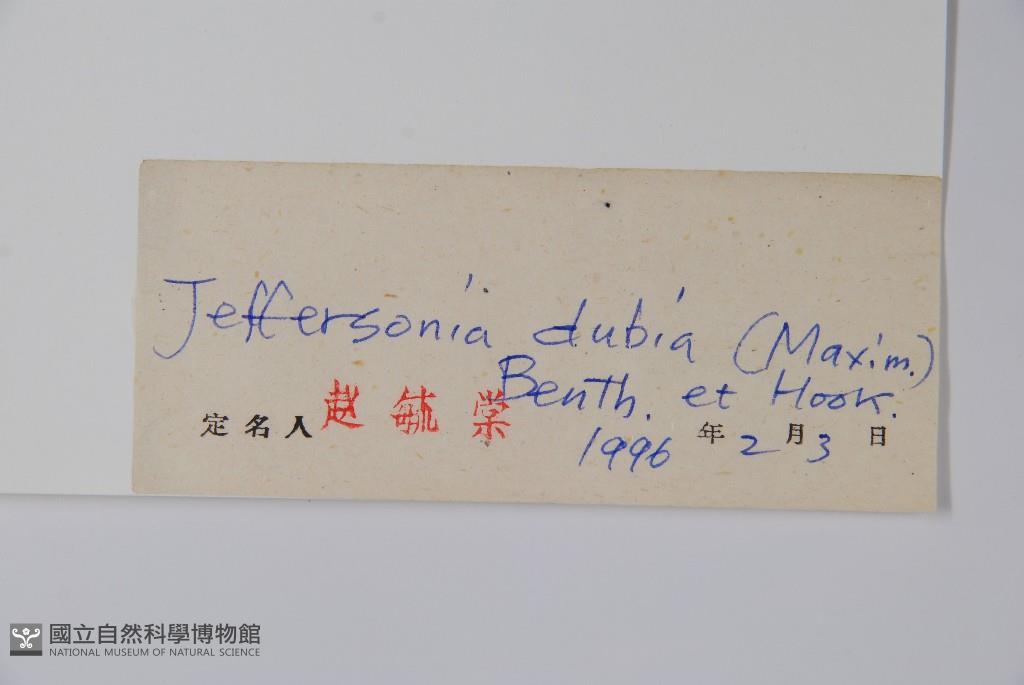 Jeffersonia dubia (Maxim.)
Benth. et Hook.
定名人 赵毓棠 1996年2月3日
國立自然科學博物館
NATIONAL MUSEUM OF NATURAL SCIENCE